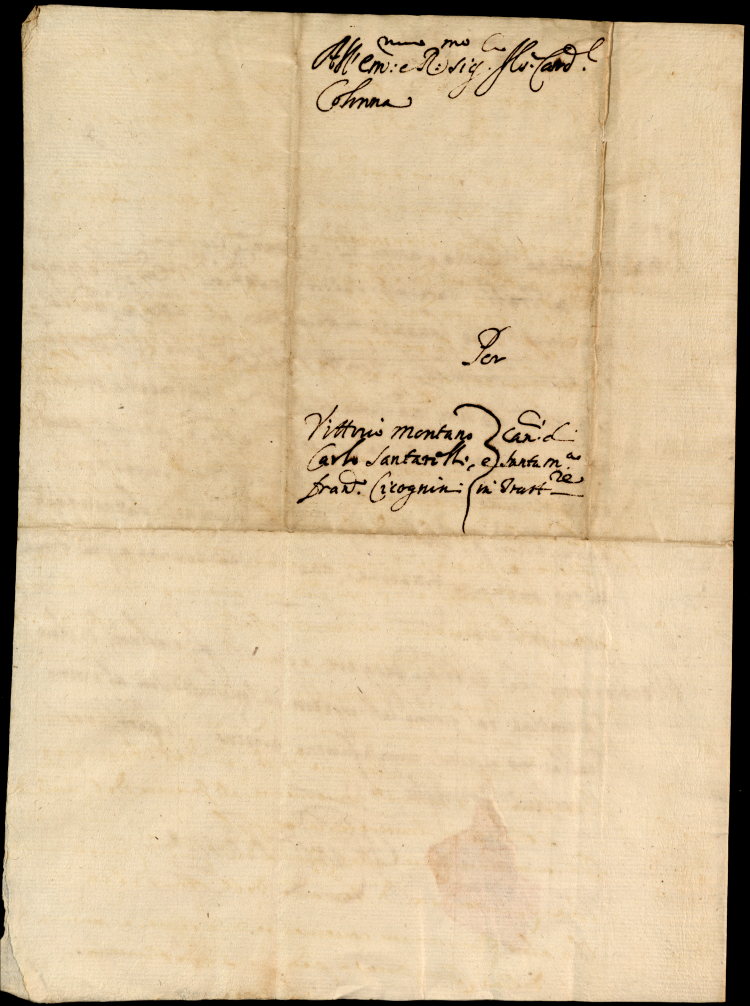 All' Em:mo e R:mo Sig:re Il S:r Card.l
Colonna
Per
Vittorio Montano
Carlo Santarelli, e
fran.co Cicognini
Can:ci di
Santa M.a
in Trast.re